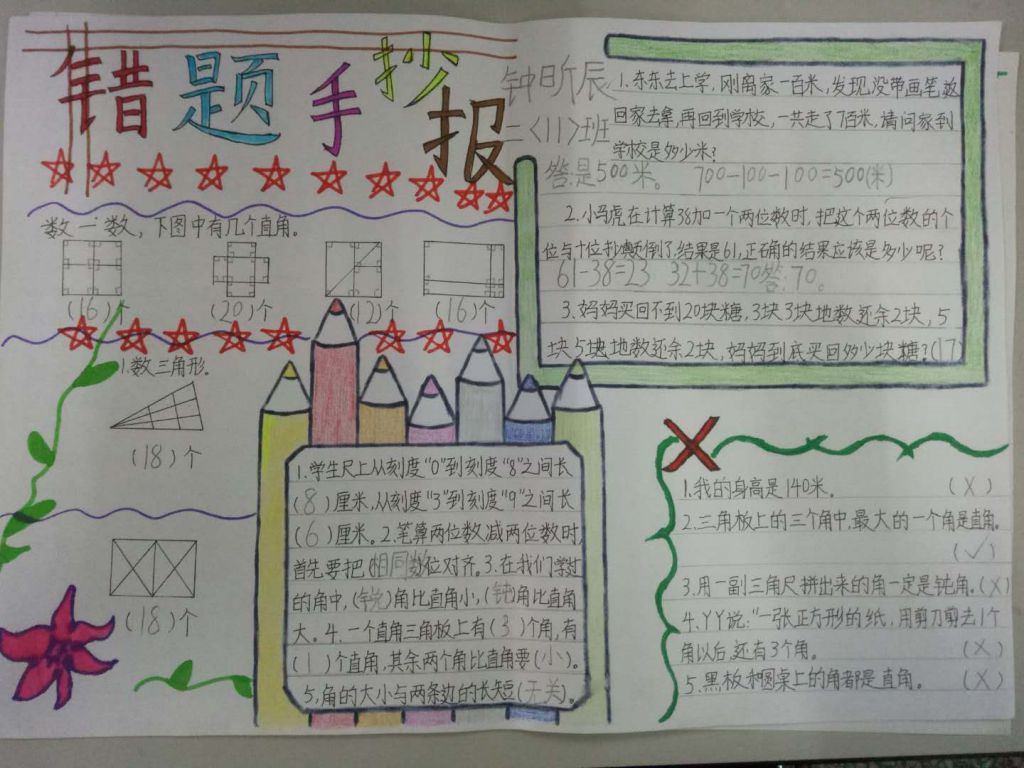 错题手抄报
钟昕辰
二〈11〉班
数一数，下图中有几个直角。
(16)个 (20)个 (12)个 (16)个
1.数三角形。
(18)个
(18)个
1.东东去上学，刚离家一百米，发现没带画笔，返
回家去拿，再回到学校，一共走了7百米，请问家到
学校是多少米？
答：是500米。 700-100-100=500(米)
2.小马虎在计算38加一个两位数时，把这个两位数的个
位与十位抄颠倒了，结果是61，正确的结果应该是多少呢？
61-38=23 32+38=70答：70。
3.妈妈买回不到20块糖，3块3块地数还余2块，5
块5块地数还余2块，妈妈到底买回多少块糖？(17)
1.学生尺上从刻度“0”到刻度“8”之间长
(8)厘米，从刻度“3”到刻度“9”之间长
(6)厘米。2.笔算两位数减两位数时，
首先要把(相同数)位对齐。3.在我们学过
的角中，(锐)角比直角小，(钝)角比直角
大。4.一个直角三角板上有(3)个角，有
(1)个直角，其余两个角比直角要(小)。
5.角的大小与两条边的长短(无关)。
1.我的身高是140米。 (X)
2.三角板上的三个角中，最大的一个角是直角。
(✓)
3.用一副三角尺拼出来的角一定是钝角。(X)
4.丫丫说：“一张正方形的纸，用剪刀剪去1个
角以后，还有3个角。 (X)
5.黑板和圆桌上的角都是直角。 (X)